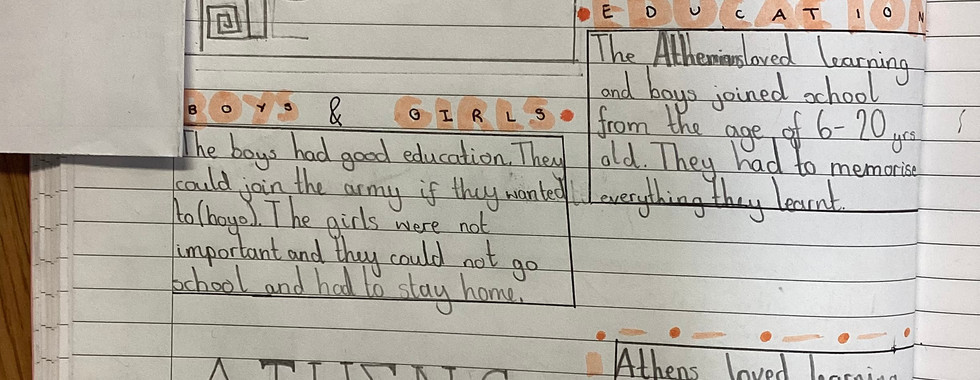 EDUCATION
The Athenians loved learning
and boys joined school
from the age of 6-20 yrs
old. They had to memorise
everything they learnt.
BOYS & GIRLS
The boys had good education. They
could join the army if they wanted
to (boys). The girls were not
important and they could not go
school and had to stay home.
Athens loved learning